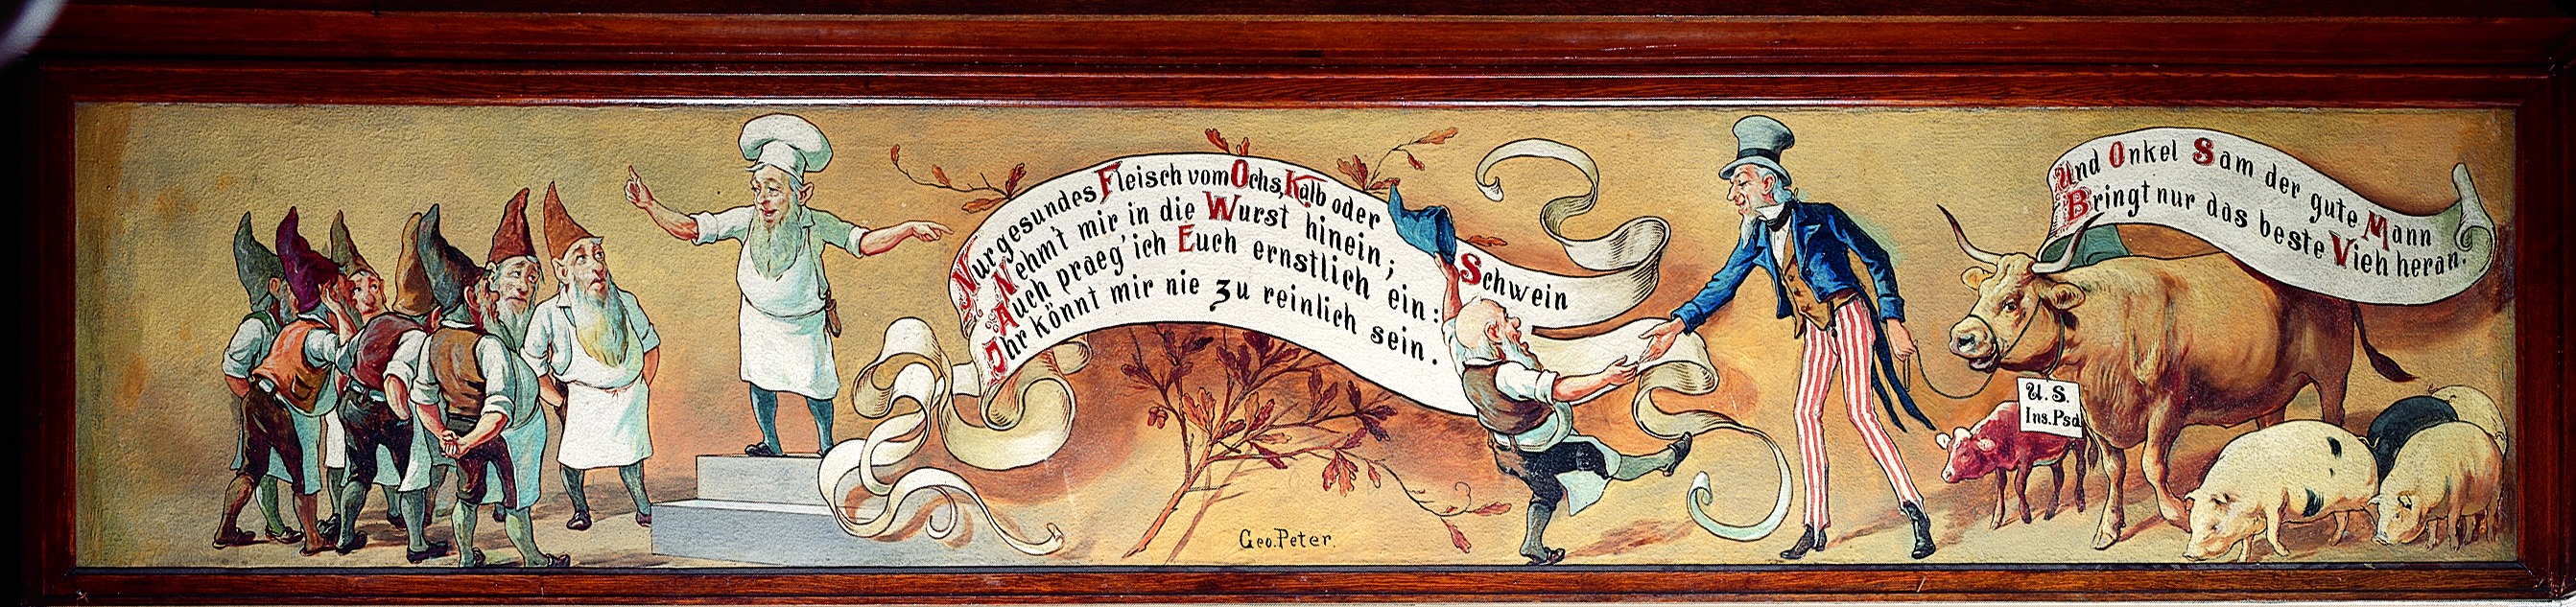 Nur gesundes Fleisch vom Ochs, Kalb oder Schwein
Nehm't mir in die Wurst hinein;
Auch praeg' ich Euch ernstlich ein:
Ihr könnt mir nie zu reinlich sein.
Und Onkel Sam der gute Mann
Bringt nur das beste Vieh heran.
U. S.
Ins. Psd
Geo. Peter.